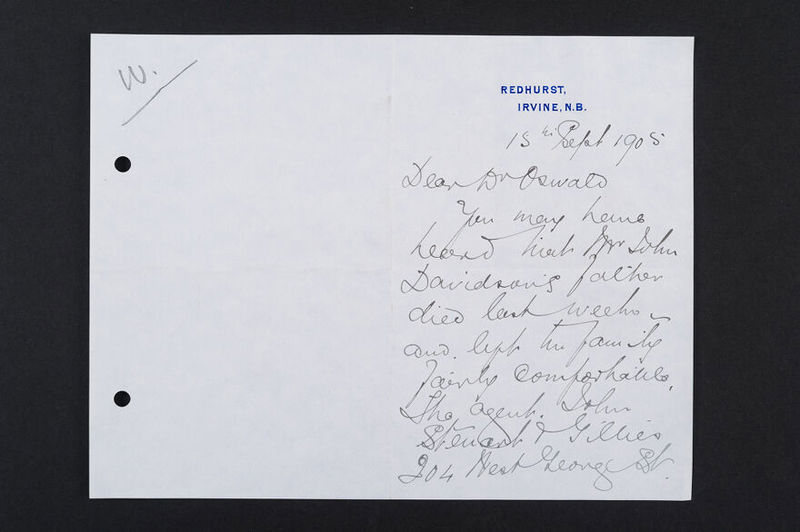 W.
REDHURST,
IRVINE, N.B.
15th Sept 1905
Dear Dr Oswald
You may have
heard that Mr John
Davidson's father
died last week -
and left the family
fairly comfortable.
The agent. John
Stewart & Gillies
204 West George St.